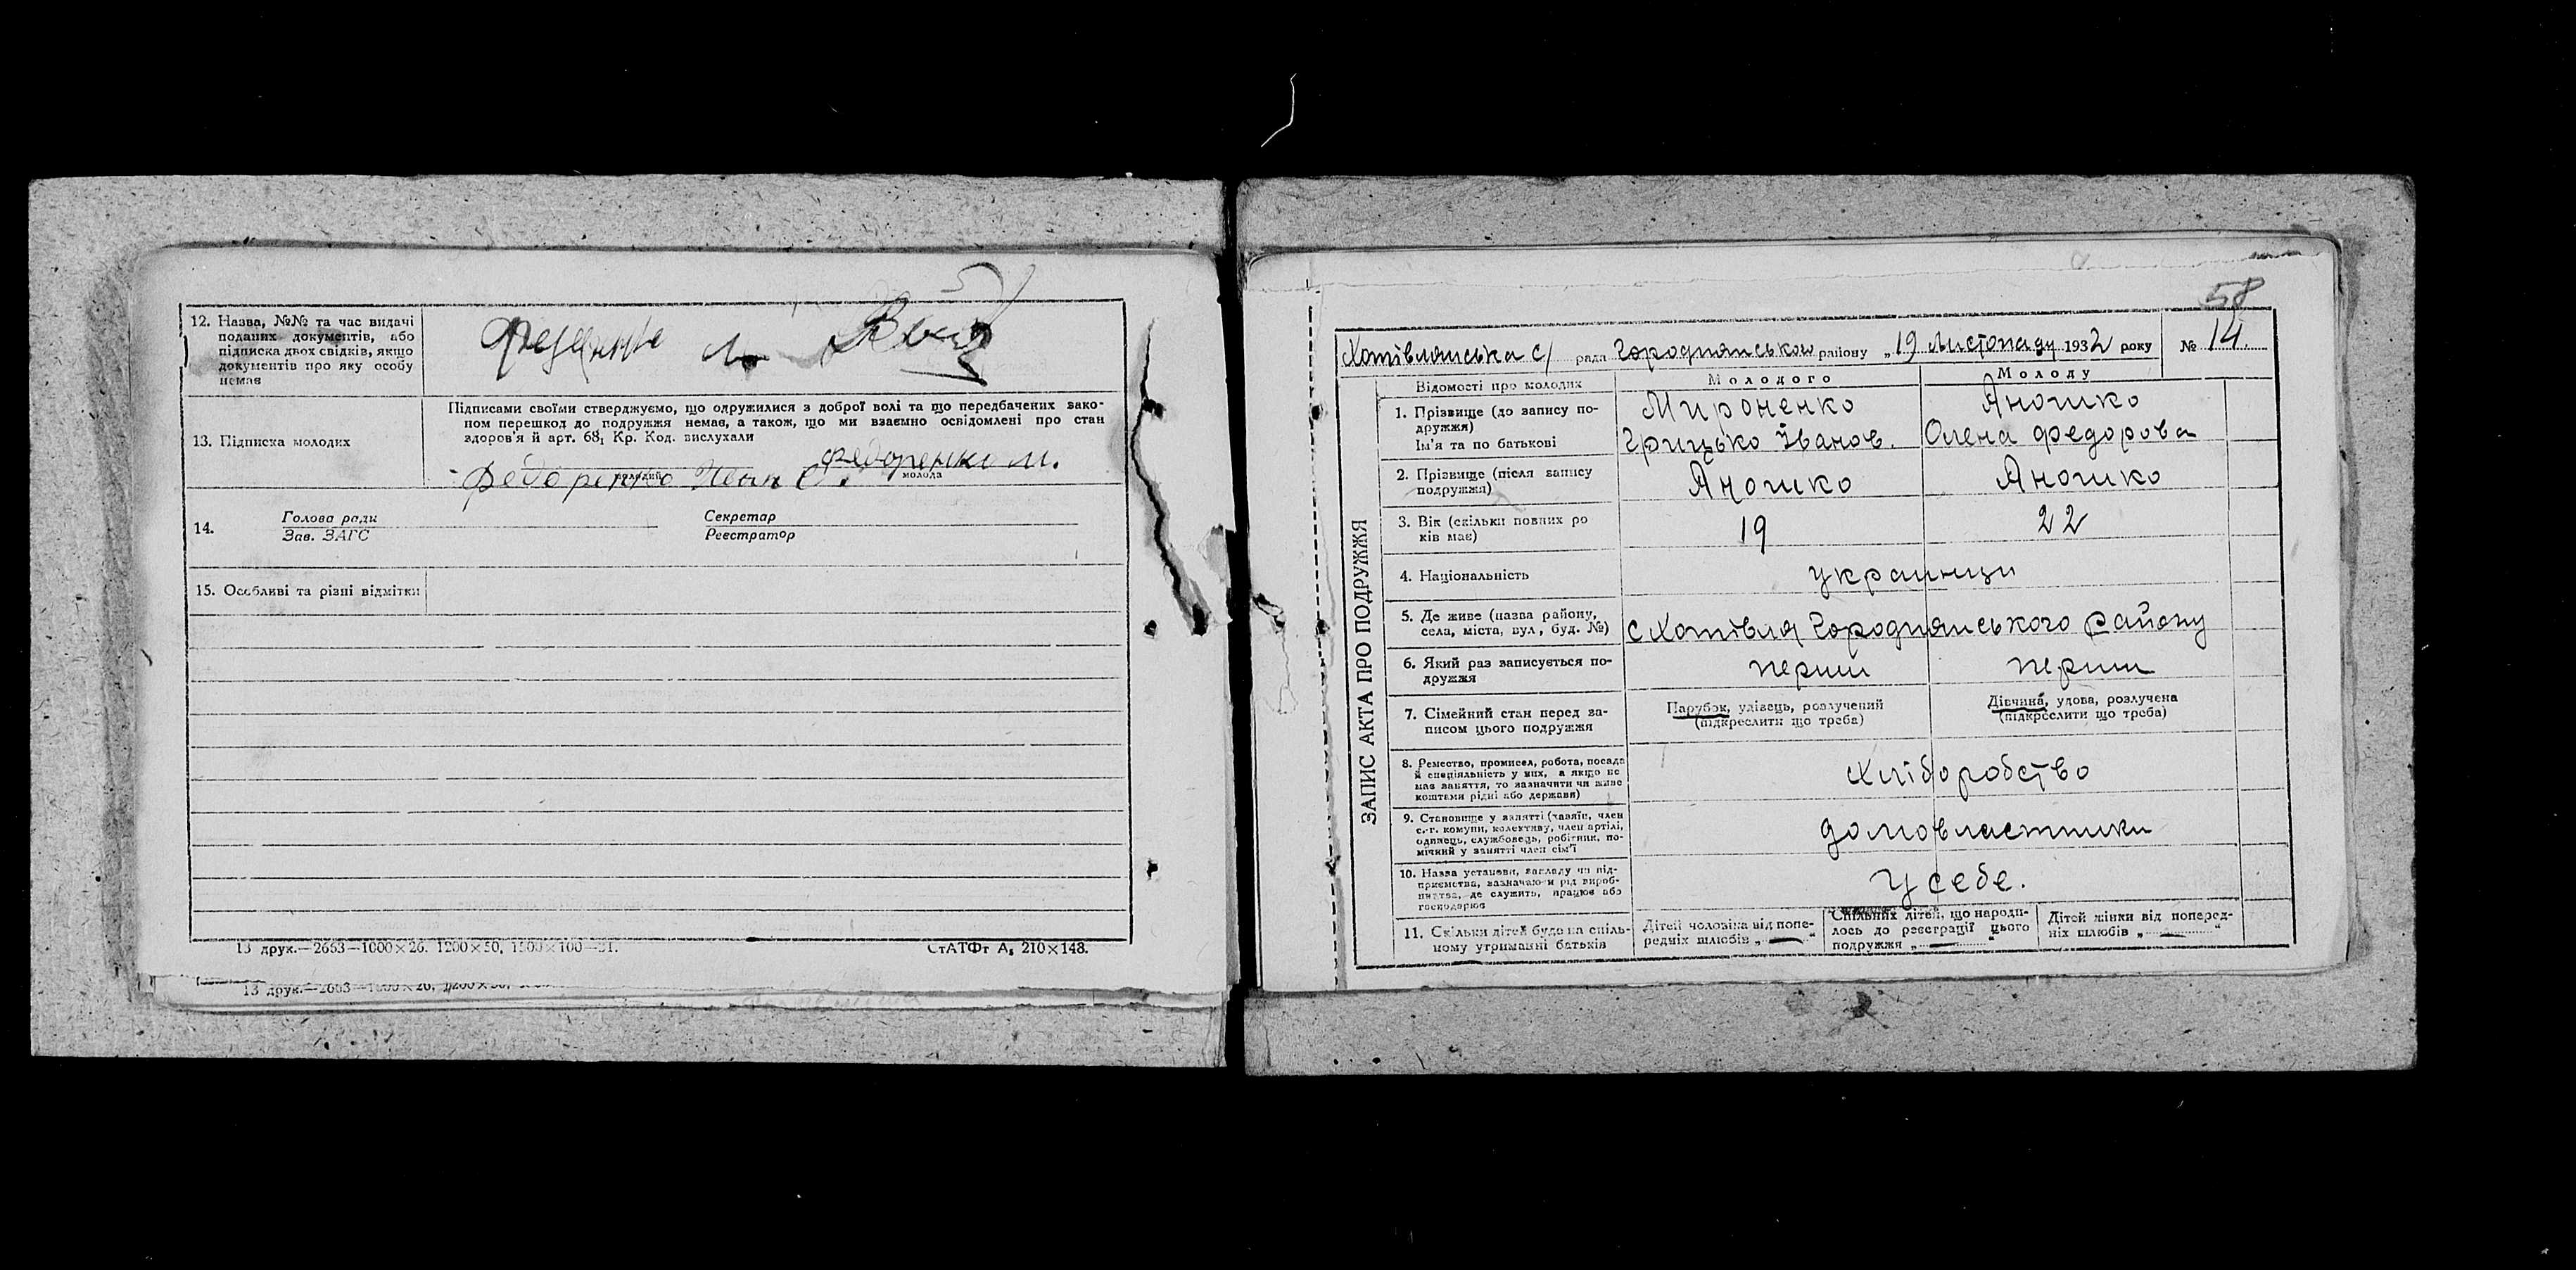 12. Назва, №№ та час видачі
поданих документів, або
підписка двох свідків, якщо
документів про яку особу
немає
13. Підписка молодих
Підписами своїми стверджуємо, що одружилися з доброї волі та що передбачених зако-
ном перешкод до подружжя немає, а також, що ми взаємно освідомлені про стан
здоров'я й арт. 68, Кр. Код. вислухали
Федоренко м.
Федоренко Иван
молодий
молода
14.
Голова ради
Зав. ЗАГС
Секретар
Реєстратор
15. Особливі та різні відмітки
13 друк.—2663—1000×26. 1200×50, 1500×100—31.
СтАТФт А₅ 210×148.
13 друк.—2663
58
Хотівлянська с/ рада Городнянського району „19 Листопаду 1932 року
№ 14.
ЗАПИС АКТА ПРО ПОДРУЖЖЯ
Відомості про молодих
Молодого
Молоду
1. Прізвище (до запису по-
дружжя)
Ім'я та по батькові
Мироненко
Грицько Іванов.
Аношко
Олена Федорова
2. Прізвище (після запису
подружжя)
Аношко
Аношко
3. Вік (скільки повних ро
ків має)
19
22
4. Національність
украинци
5. Де живе (назва району,
села, міста, вул., буд. №)
с Хотівля Городнянського району
6. Який раз записується по-
дружжя
перши
перши
7. Сімейний стан перед за-
писом цього подружжя
Парубок, удівець, розлучений
(підкреслити що треба)
Дівчина, удова, розлучена
(підкреслити що треба)
8. Ремество, промисел, робота, посада
й спеціяльність у них, а якщо не
має заняття, то зазначити чи живе
коштами рідні або держави)
хліборобство
9. Становище у занятті (хазяїн, член
с.-г. комуни, колективу, член артілі,
одинець, службовець, робітник, по-
мічний у занятті член сім'ї
домовластники
10. Назва установи, закладу чи під-
приємства, зазначаючи рід вироб-
ництва, де служить, працює або
господарює
У себе.
11. Скільки дітей буде на спіль-
ному утриманні батьків
Дітей чоловіка від попе-
редніх шлюбів „—“
Спільних дітей, що народи-
лось до реєстрації цього
подружжя „—“
Дітей жінки від поперед-
ніх шлюбів „—“